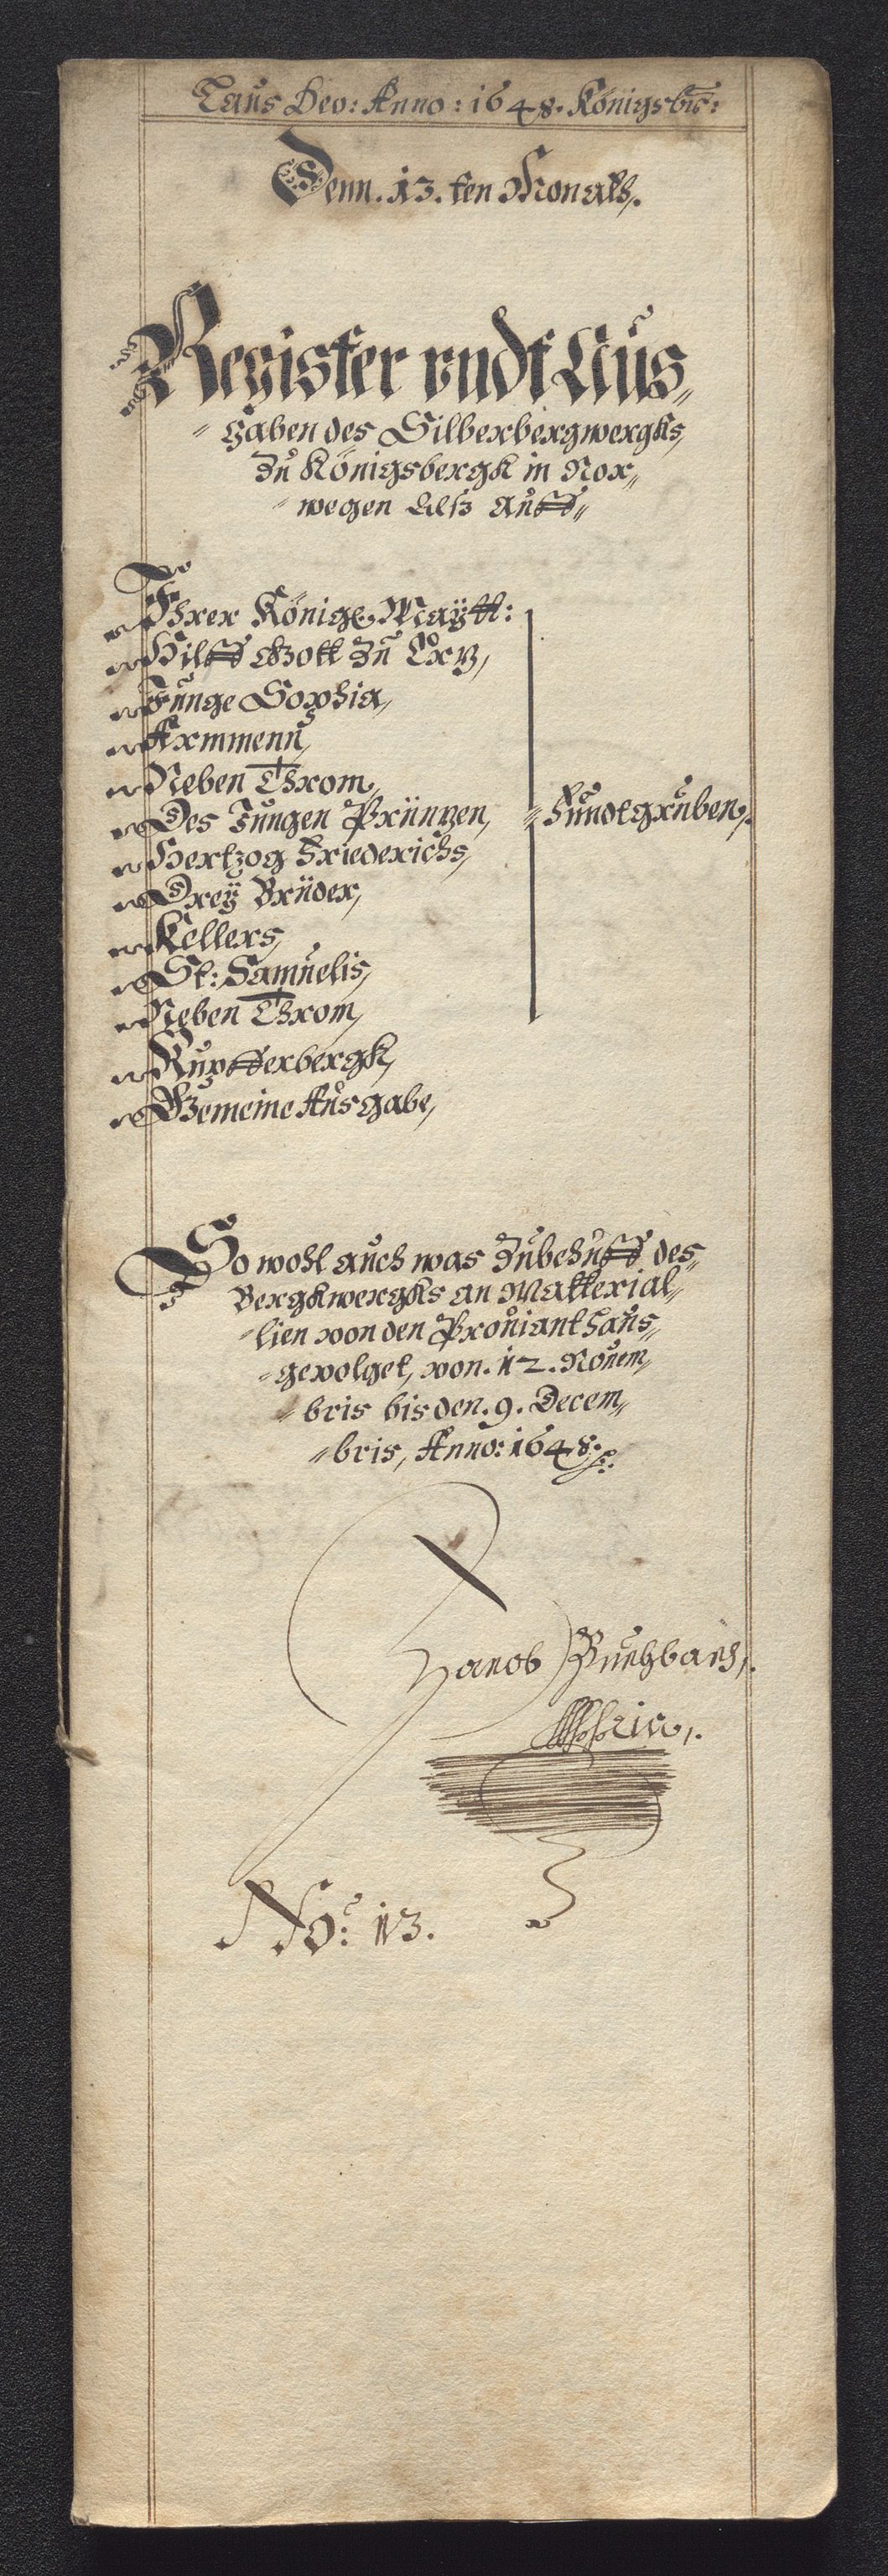 Laus Deo: Anno: 1648. Königsb:
Denn. 13. ten Monats.
Register vndt Aus„
„gaben des Silberbergwergks,
Zu Königsbergk in Nor„
„wegen Alsz auff„
Ihrer Königl. Maÿtt:
Hilff Gott Zu Ertz,
Junge Sophia,
Armmenn,
Neben Throm,
Des Jungen Printzen,
Fundtgruben,
Hertzog Friederichs,
Dreÿ Brüder,
Kellers,
St: Samuelis,
Neben Throm,
Kupfferbergk,
Gemeine Ausgabe,
So wohl auch was Zubehuff des„
Bergkwergks an Matterial„
„lien von den Prouianthaus„
„gevolget, von. 12. Nouem„
„bris bis den. 9. Decem„
„bris, Anno: 1648.
Jacob Buchbach,.
No: 13.